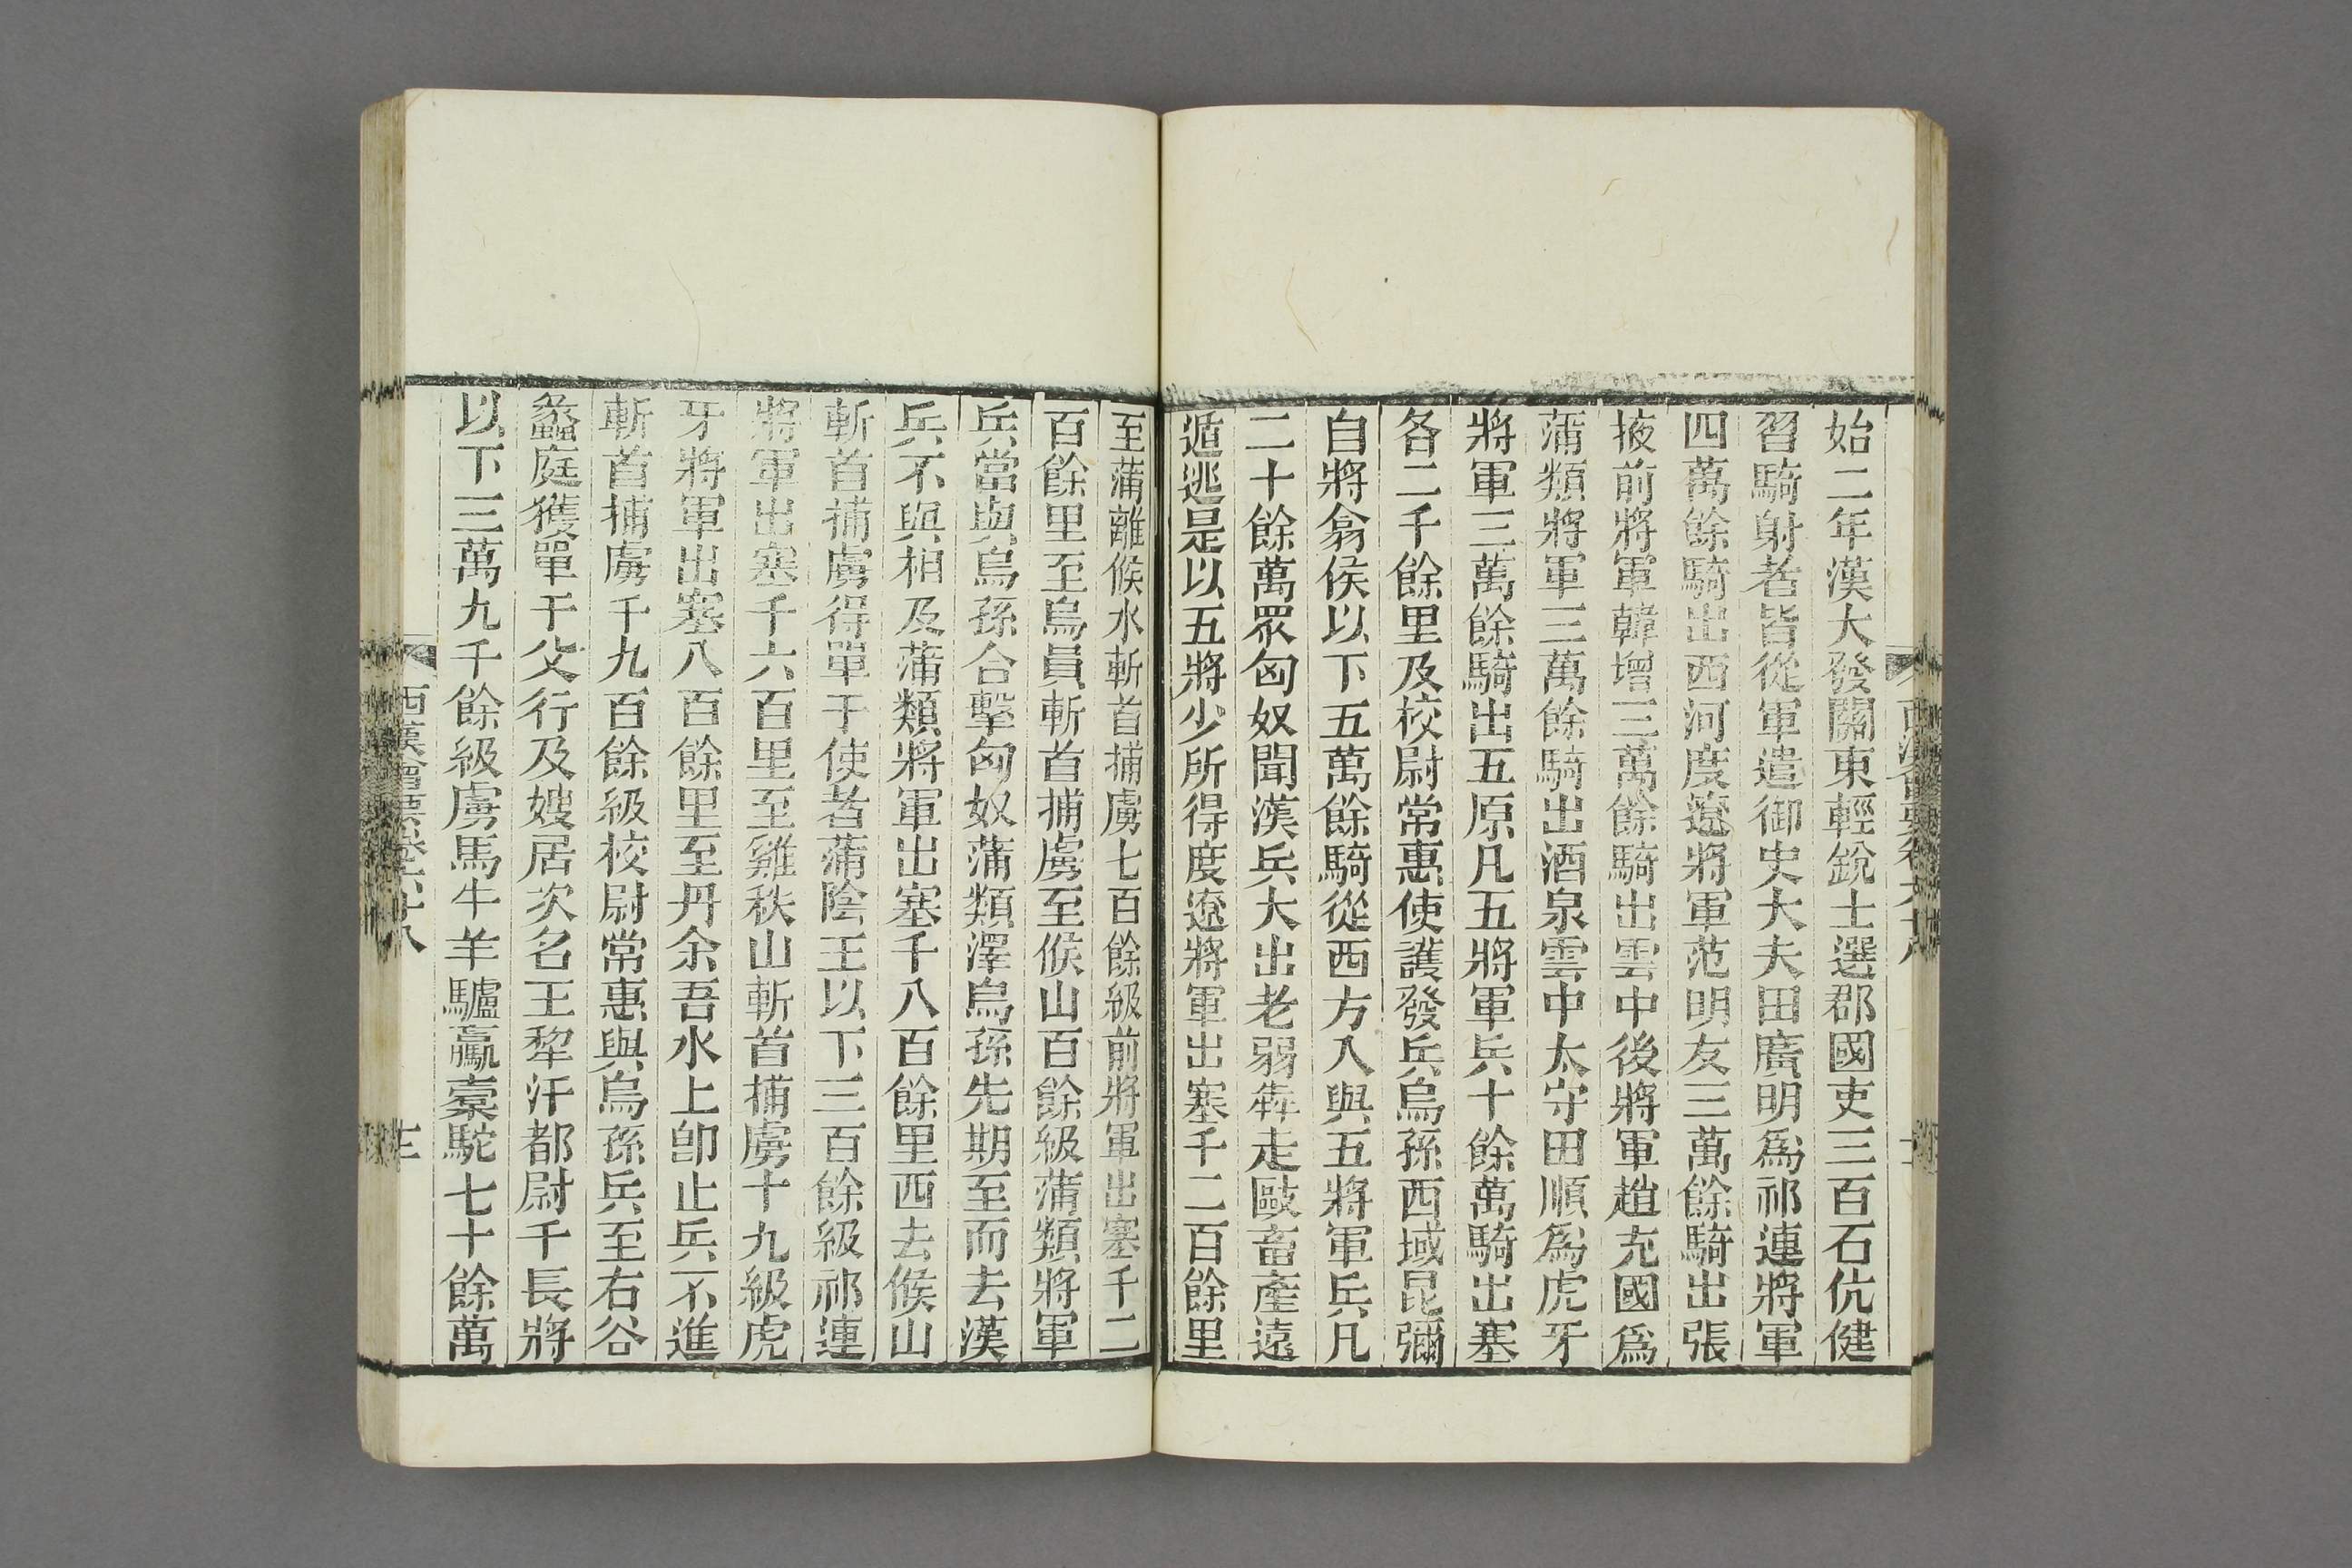 始二年漢大發關東輕銳士選郡國吏三百石伉健
習騎射者皆從軍遣御史大夫田廣明爲祁連將軍
四萬餘騎出西河度遼將軍范明友三萬餘騎出張
掖前將軍韓增三萬餘騎出雲中後將軍趙充國爲
蒲類將軍三萬餘騎出酒泉雲中太守田順爲虎牙
將軍三萬餘騎出五原凡五將軍兵十餘萬騎出塞
各二千餘里及校尉常惠使護發兵烏孫西域昆彌
自將翕侯以下五萬餘騎從西方入與五將軍兵凡
二十餘萬眾匈奴聞漢兵大出老弱犇走歐畜產遠
遁逃是以五將少所得度遼將軍出塞千二百餘里
至蒲離候水斬首捕虜七百餘級前將軍出塞千二
百餘里至烏員斬首捕虜至候山百餘級蒲類將軍
兵當與烏孫合擊匈奴蒲類澤烏孫先期至而去漢
兵不與相及蒲類將軍出塞千八百餘里西去候山
斬首捕虜得單于使者蒲陰王以下三百餘級祁連
將軍出塞千六百里至雞秩山斬首捕虜十九級虎
牙將軍出塞八百餘里至丹余吾水上卽止兵不進
斬首捕虜千九百餘級校尉常惠與烏孫兵至右谷
蠡庭獲單于父行及嫂居次名王犂汗都尉千長將
以下三萬九千餘級虜馬牛羊驢驘橐駝七十餘萬
西漢會要卷六十八